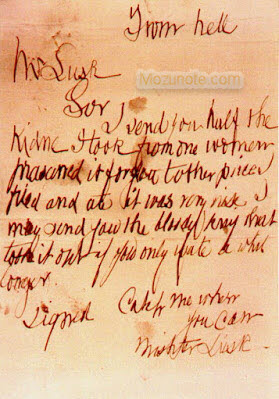 From hell
Mozunote.com
Mr Lusk
Sor
I send you half the
Kidne I took from one women
prasarved it for you tother piece I
fried and ate it was very nise I
may send you the bloody knif that
took it out if you only wate a whil
longer.
Signed Catch me when
you can
Mishter Lusk.